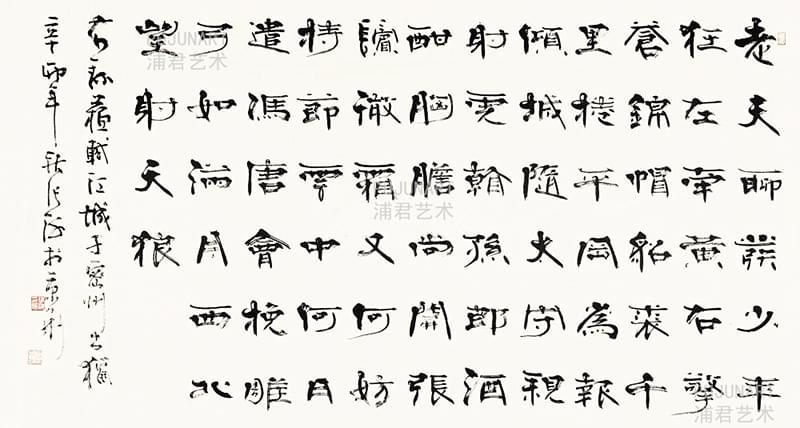 老夫聊發少年
狂左牽黃右擎
蒼錦帽貂裘千
里捲平岡為報
傾城隨太守親
射虎看孫郎酒
酣胸膽尚開張
鬢微霜又何妨
持節雲中何日
遣馮唐會挽雕
弓如滿月西北
望射天狼
右錄蘇軾江城子密州出獵
辛卯年於京
浦君艺术
浦君艺术
浦君艺术